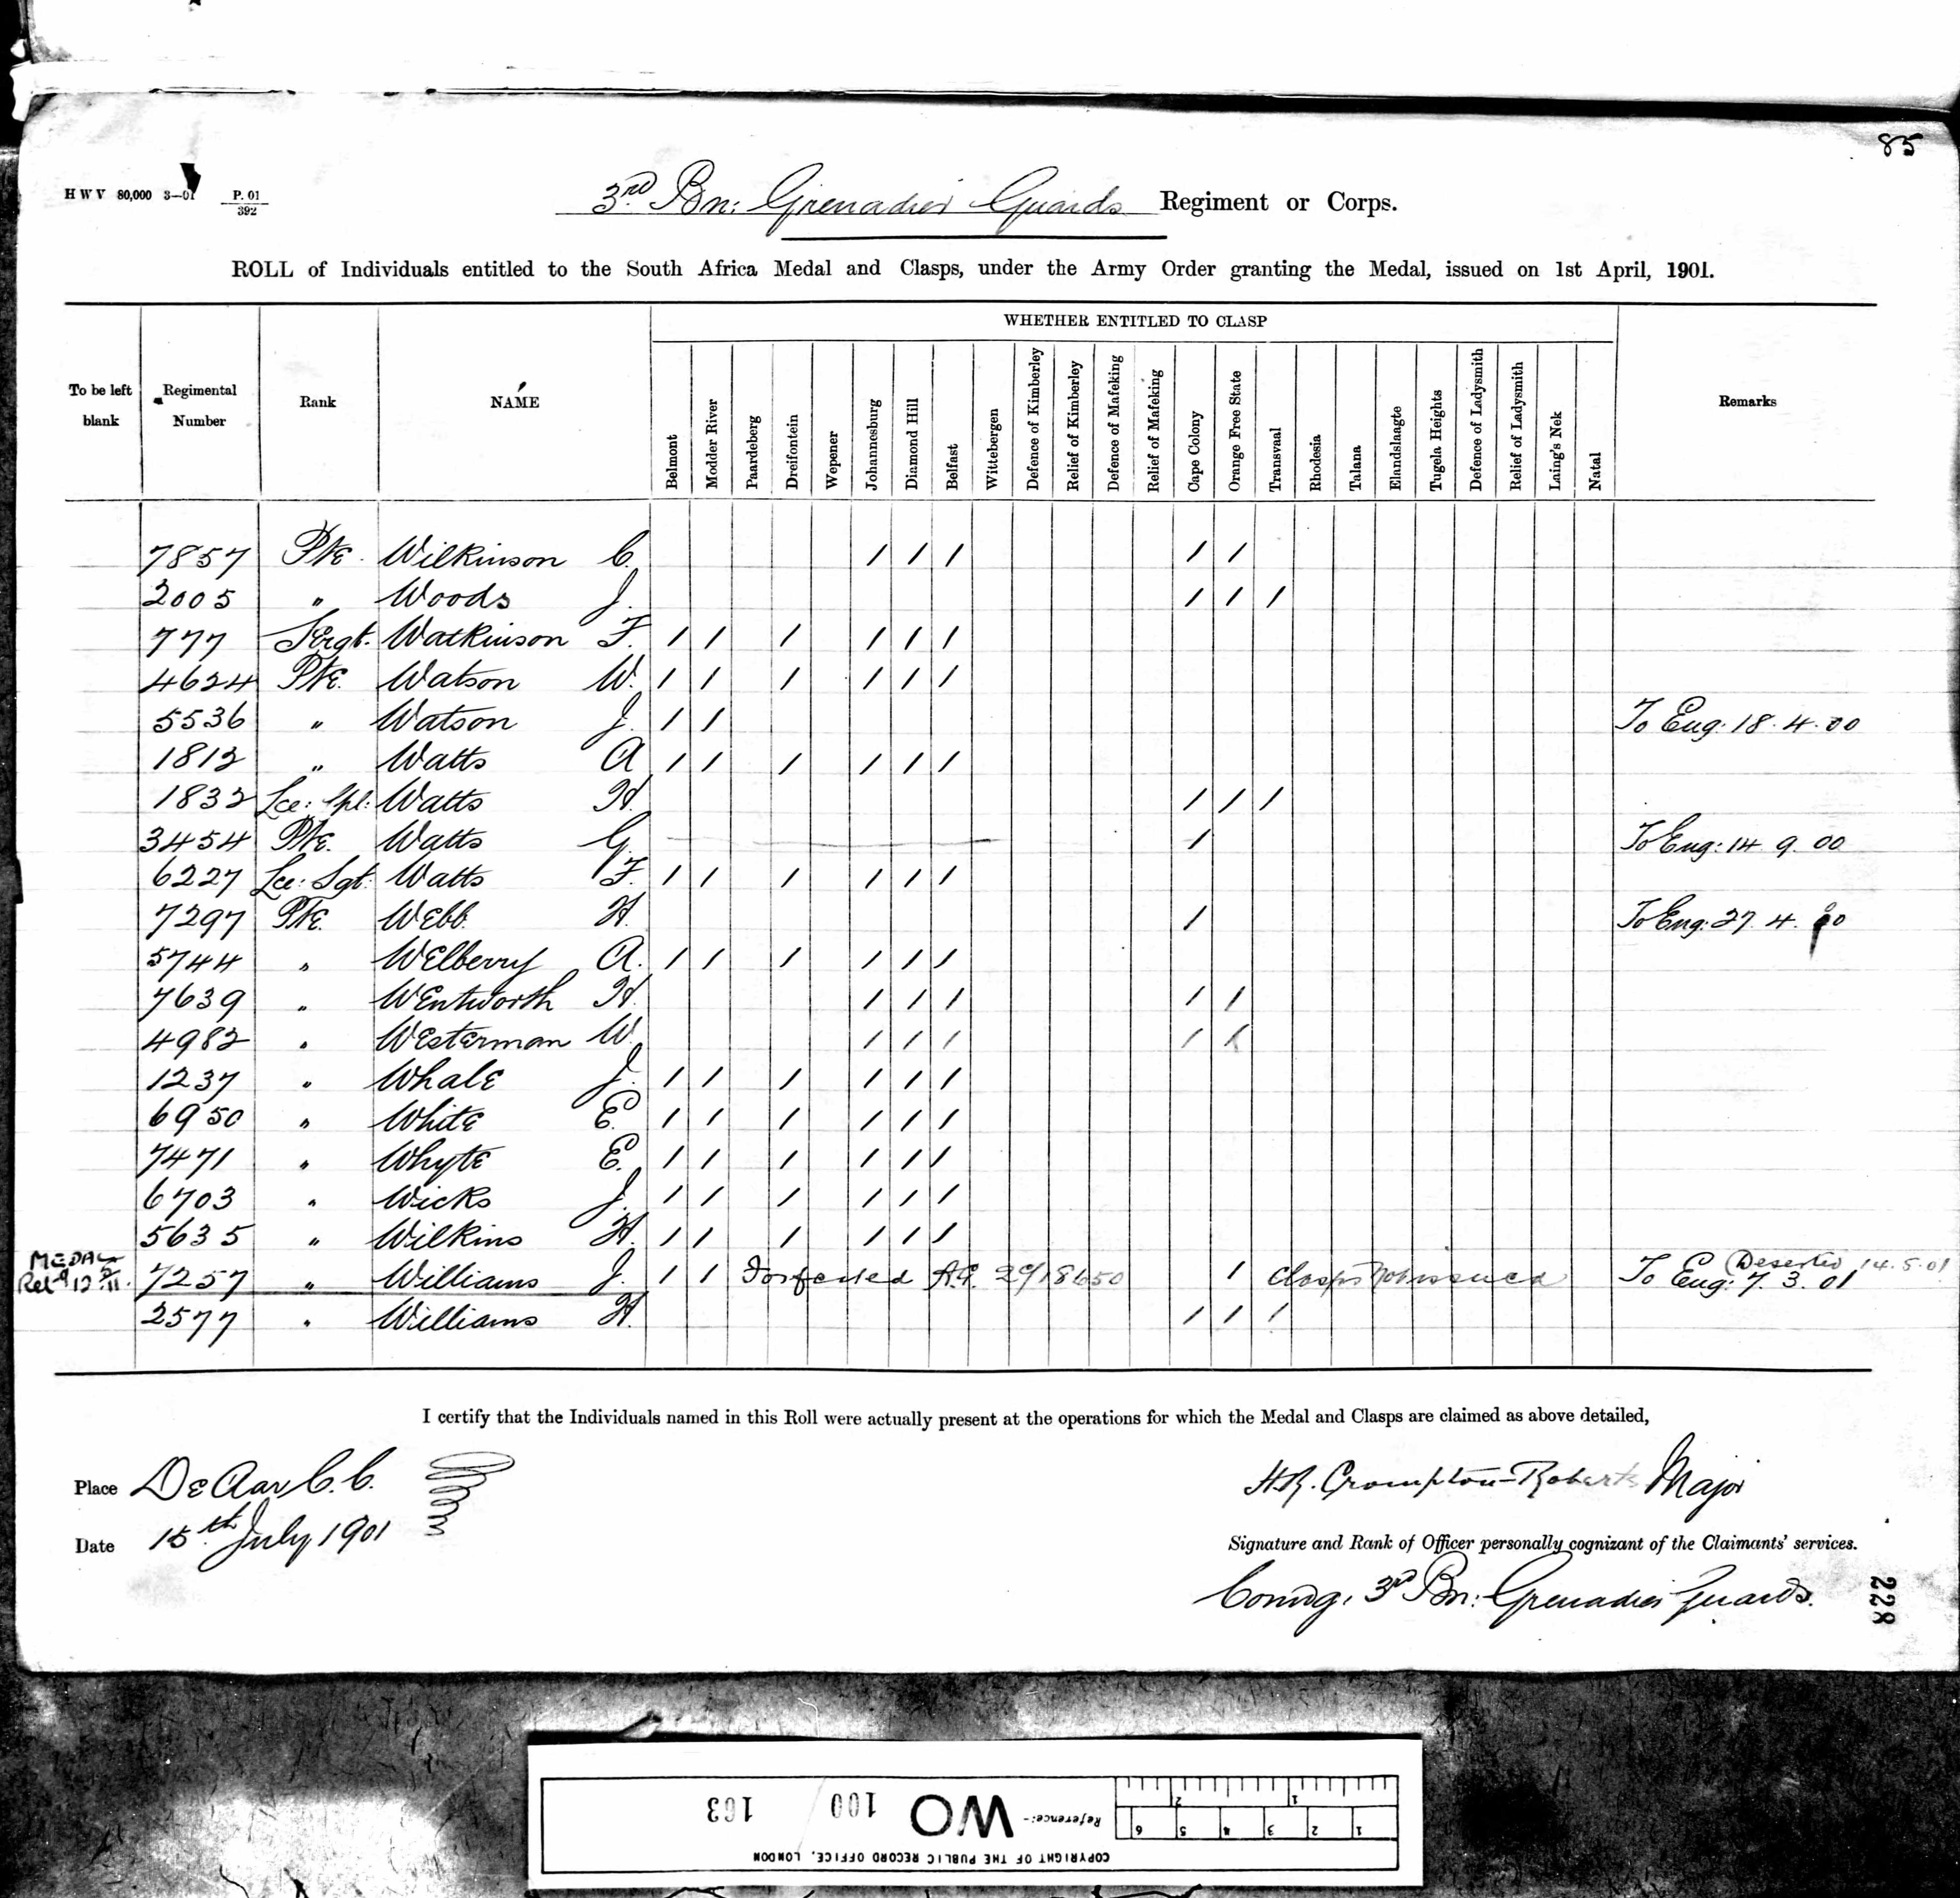 85
H W V 80,000 3—01 P. 01/392
3rd Bn: Grenadier Guards Regiment or Corps.
ROLL of Individuals entitled to the South Africa Medal and Clasps, under the Army Order granting the Medal, issued on 1st April, 1901.
To be left blank Regimental Number Rank NAME WHETHER ENTITLED TO CLASP Remarks
Belmont Modder River Paardeberg Dreifontein Wepener Johannesburg Diamond Hill Belfast Wittebergen Defence of Kimberley Relief of Kimberley Defence of Mafeking Relief of Mafeking Cape Colony Orange Free State Transvaal Rhodesia Talana Elandslaagte Tugela Heights Defence of Ladysmith Relief of Ladysmith Laing's Nek Natal
7857 Pte. Wilkinson C. / / / / /
2005 " Woods J. / / /
777 Sergt. Watkinson F. / / / / / /
4624 Pte. Watson W. / / / / / /
5536 " Watson J. / / To Eng: 18.4.00
1812 " Watts A / / / / / /
1832 Lce: Cpl: Watts H. / / /
3454 Pte. Watts G. / To Eng: 14.9.00
6227 Lce: Sgt: Watts F. / / / / / /
7297 Pte. Webb H. / To Eng: 27.4.00
5744 " Welberry A. / / / / / /
7639 " Wentworth H. / / / / /
4982 " Westerman W. / / / / /
1237 " Whale J. / / / / / /
6950 " White E. / / / / / /
7471 " Whyte E. / / / / / /
6703 " Wicks J. / / / / / /
5635 " Wilkins H. / / / / / /
MEDAL
7257 " Williams J. / / Forfeited / Clasps Not issued To Eng: 7.3.01 (Deserted 14.5.01
2577 " Williams H. / / /
I certify that the Individuals named in this Roll were actually present at the operations for which the Medal and Clasps are claimed as above detailed,
Place De Aar C.C.
H.R. Crompton-Roberts Major
Date 15th July 1901
Signature and Rank of Officer personally cognizant of the Claimants' services.
Comdg: 3rd Bn: Grenadier Guards.
228
COPYRIGHT OF THE PUBLIC RECORD OFFICE, LONDON
Reference:- WO 100 163
1 2 3 4 5 6
1 2